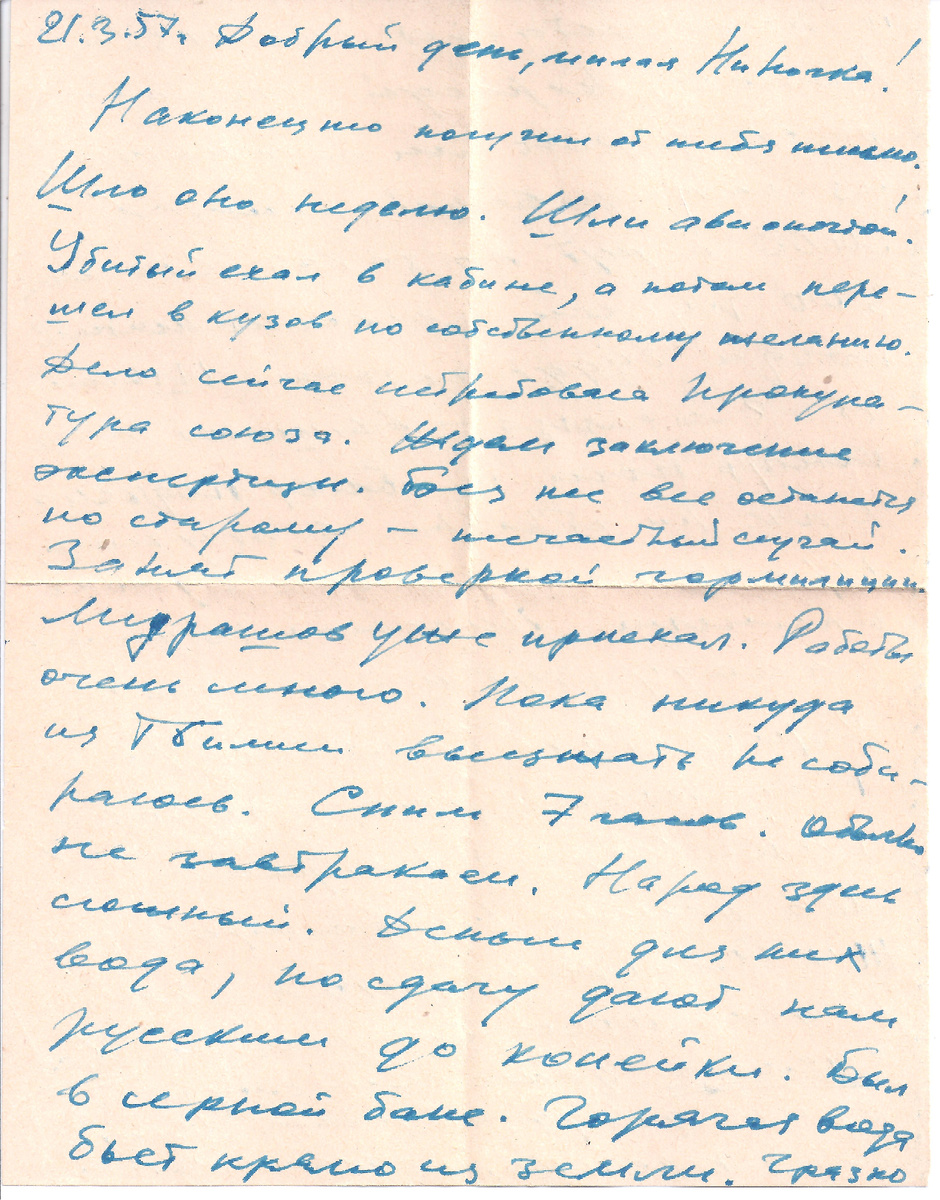 21.3.57г. Добрый день, милая Ниночка!
Наконец то получил от тебя письмо.
Шло оно неделю. Шли авиопочтой!
Убитый ехал в кабине, а потом пере-
шел в кузов по собственному желанию.
Дело сейчас истребовала Прокура-
тура союза. Ждем заключение
экспертизы. Без нее все останется
по старому – несчастный случай.
Занят проверкой гормилиции.
уже приехал. Работы
очень много. Пока никуда
из Тбилиси выезжать не соби-
раюсь. Спим 7 часов. Обычно
не завтракаем. Народ здесь
сложный. Деньги для них
вода, но сдачу дают нам
русским до копейки. Был
в серной бане. Горячая вода
бьет прямо из земли. Грязно